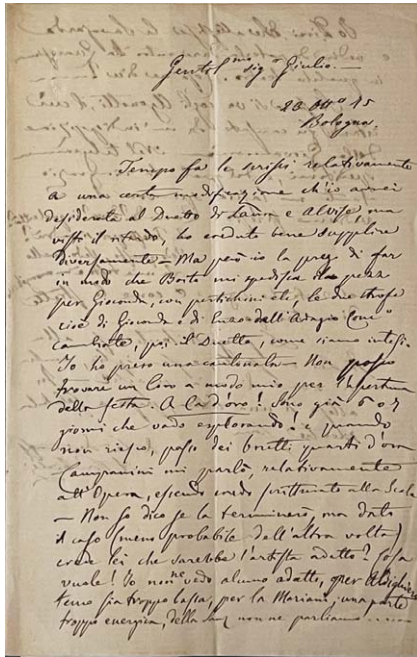 Gentilmo Sigr Giulio.—
20 Otto 75
Bologna.
Tempo fa le scrissi relativamente
a una certa modificazione ch'io avrei
desiderata al Duetto di Laura e Alvise, ma
visto il ritardo, ho creduto bene supplire
diversamente — Ma però io la prego di far
in modo che Boito mi spedisca
per Gioconda, con pertichini etc, le due strofe
cioè di Gioconda e di Enzo dell'Adagio Come
cambiate, poi il Duetto, come siamo intesi.
Io ho preso una cantonata — Non posso
trovare un Coro a modo mio per l'apertura
della festa. A la Cà d'oro! Sono già 6 o 7
giorni che vado esplorando! e quando
non riesco, passo dei brutti quarti d'ora
Campanini mi parlò, relativamente
all'Opera, essendo credo scritturato alla Scala
— Non so dico se la terminerò, ma dato
il caso (meno probabile dell'altra volta)
crede lei che sarebbe l'artista adatto? Cosa
vuole! Io non ne vedo alcuno adatto, per Aldighieri
temo sia troppo bassa, per la Mariani, una parte
troppo energica, della Sanz non ne parliamo .....